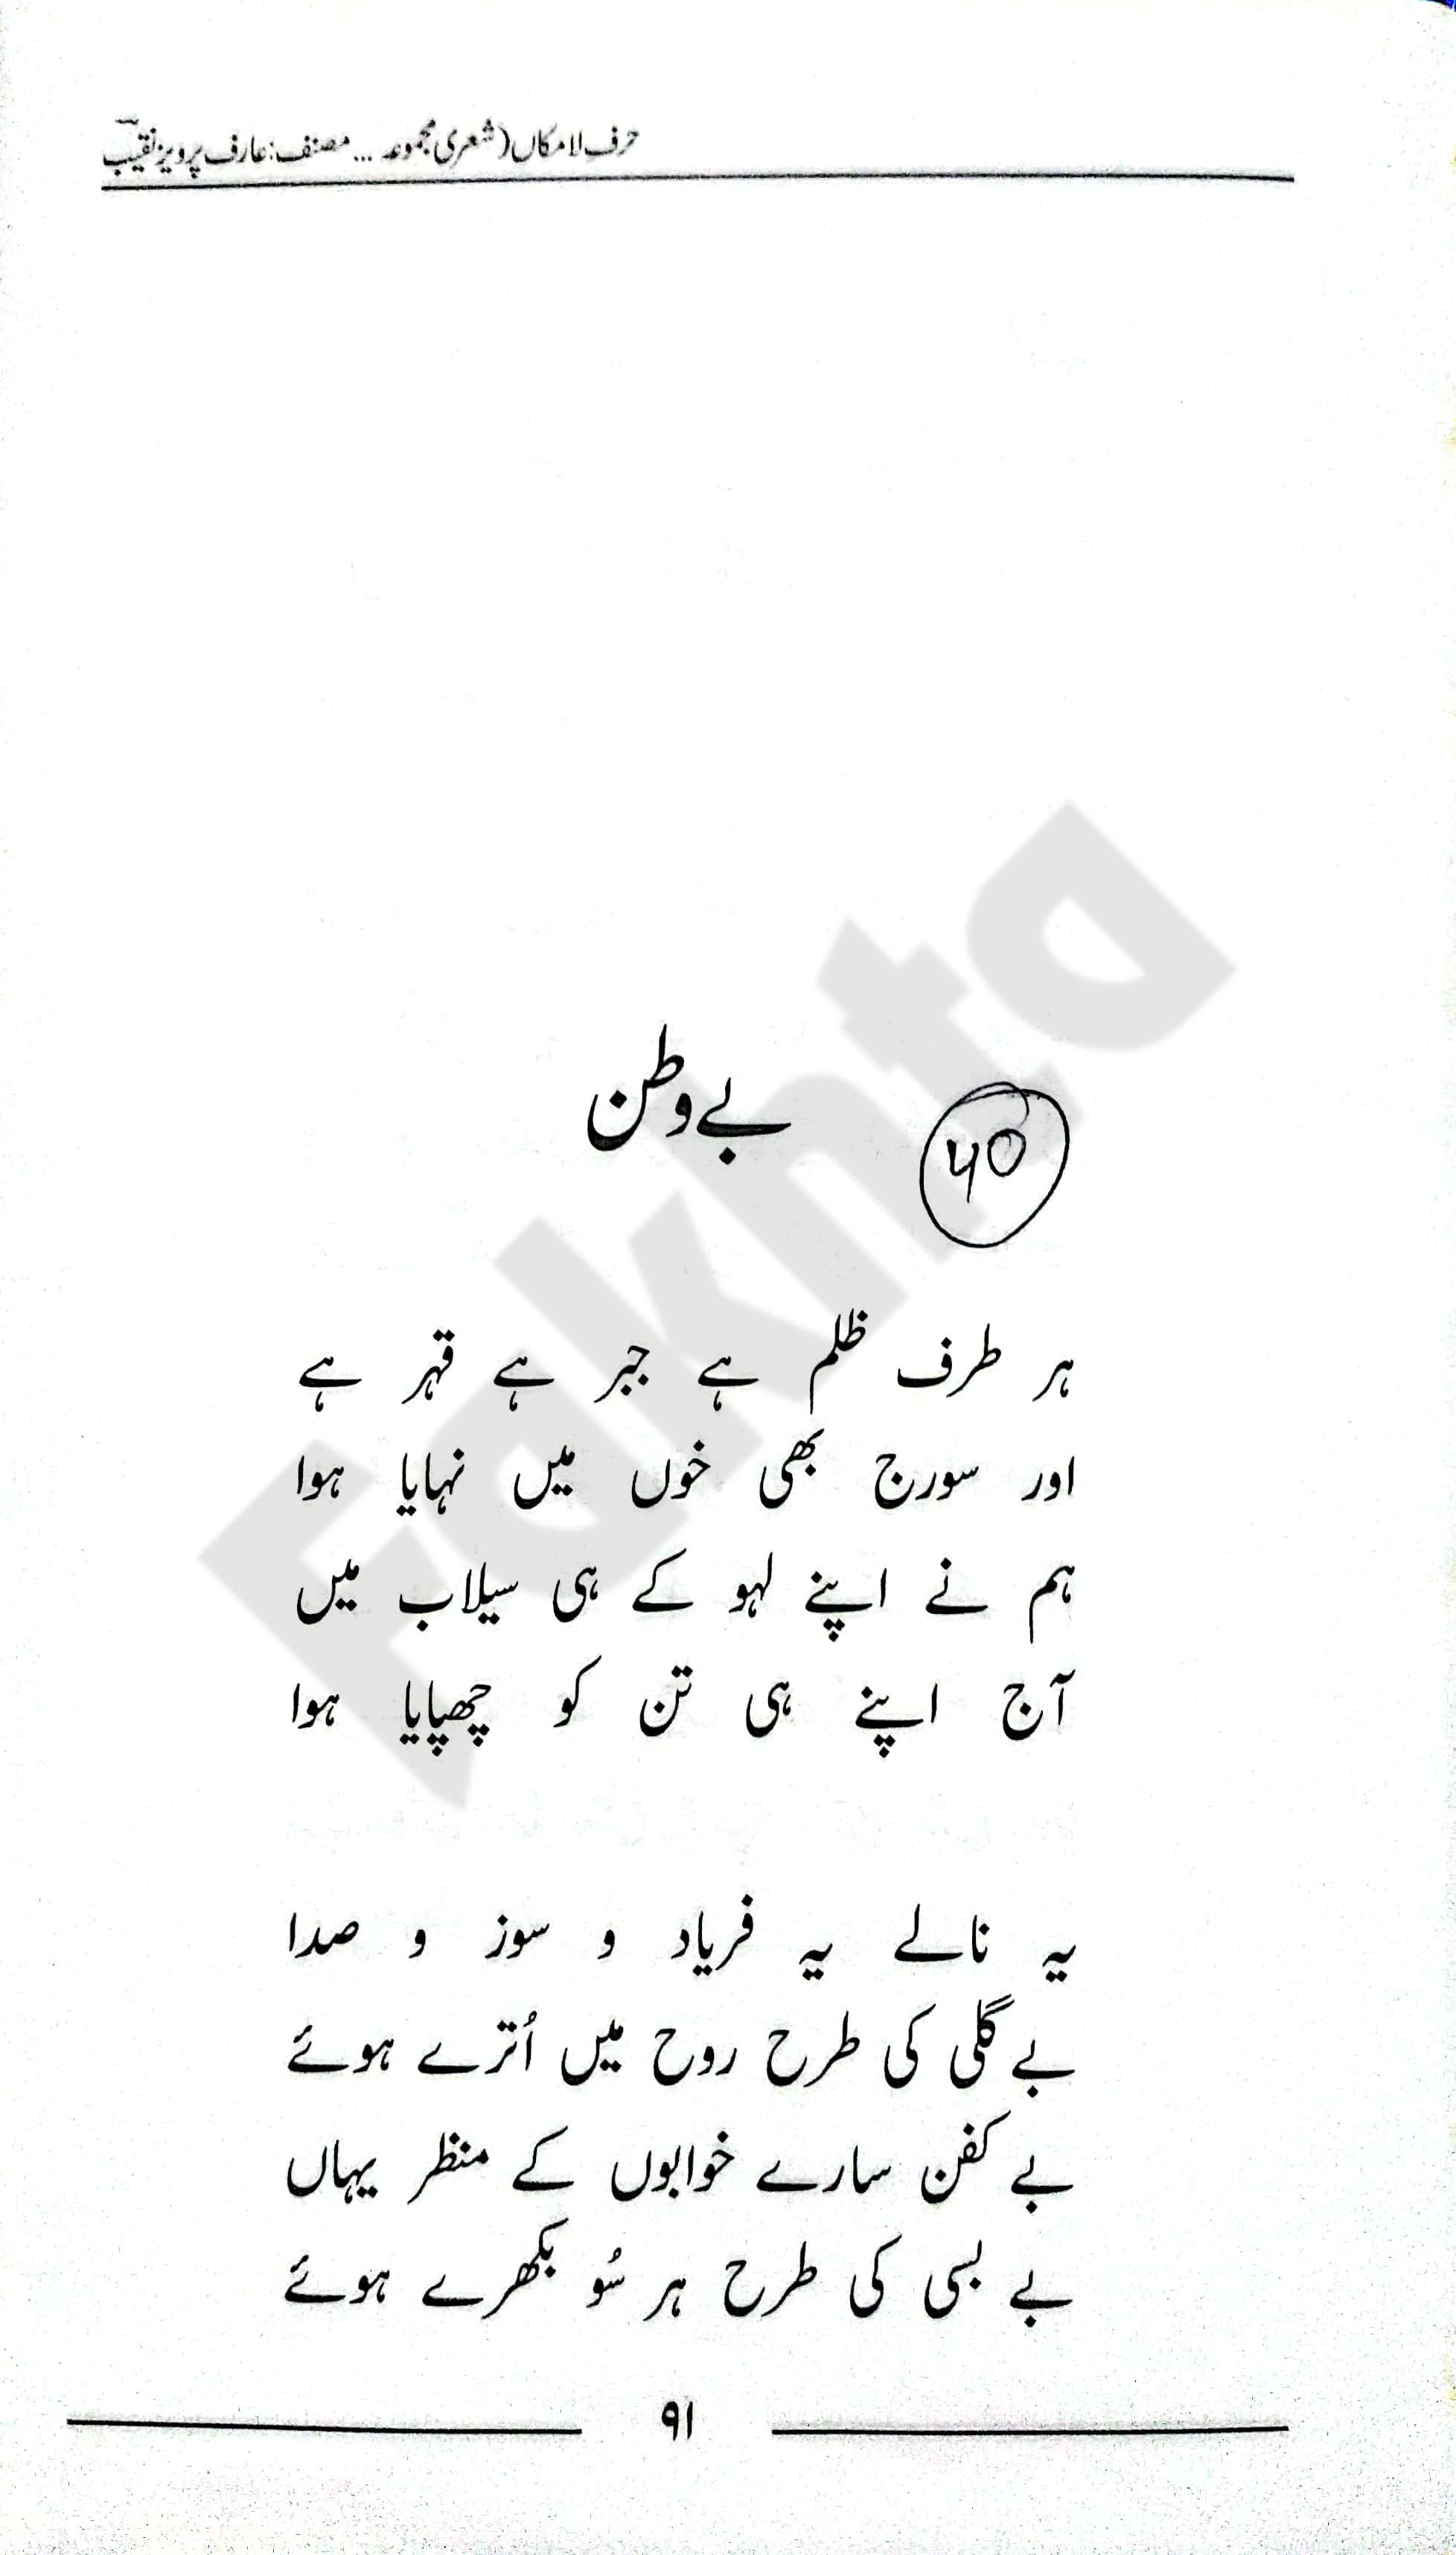 حرفِ لامکاں (شعری مجموعہ ... مصنف: عارف پرویز نقیبؔ
بے وطن
40
ہر طرف ظلم ہے جبر ہے قہر ہے
اور سورج بھی خوں میں نہایا ہوا
ہم نے اپنے لہو کے ہی سیلاب میں
آج اپنے ہی تن کو چھپایا ہوا
یہ نالے یہ فریاد و سوز و صدا
بے گلی کی طرح روح میں اُترے ہوئے
بے کفن سارے خوابوں کے منظر یہاں
بے بسی کی طرح ہر سُو بکھرے ہوئے
۹۱
Fakhta